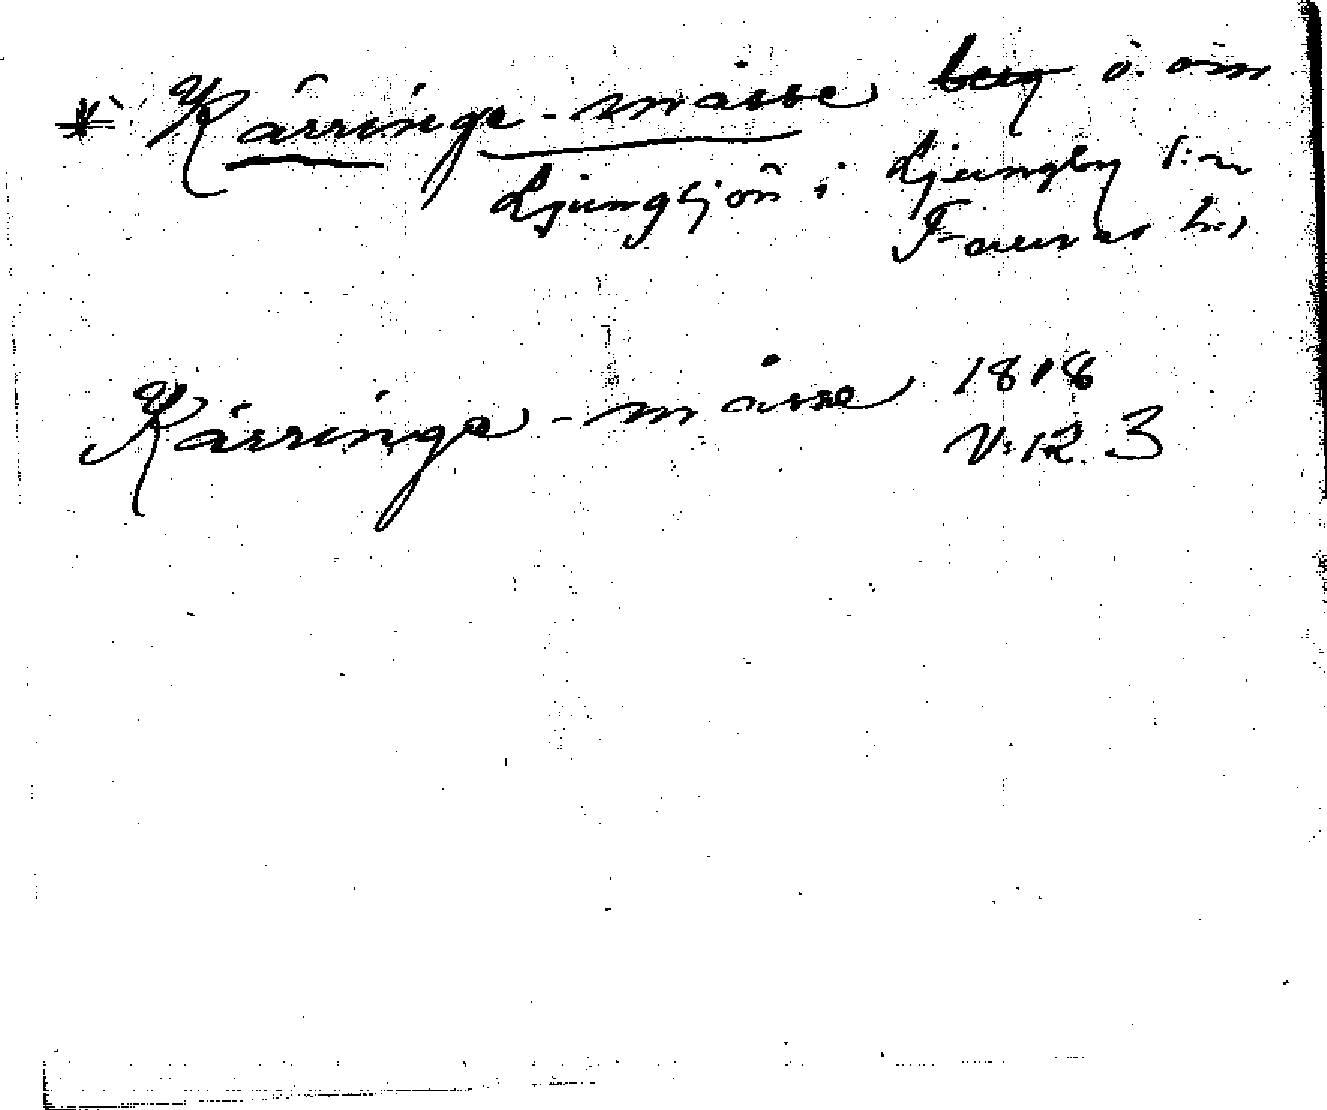 * Kärringe-måsse berg ö. om
Ljungsjön i Ljungby s:n
Faurås h.
Kärringe-måsse 1818
V:12. 3